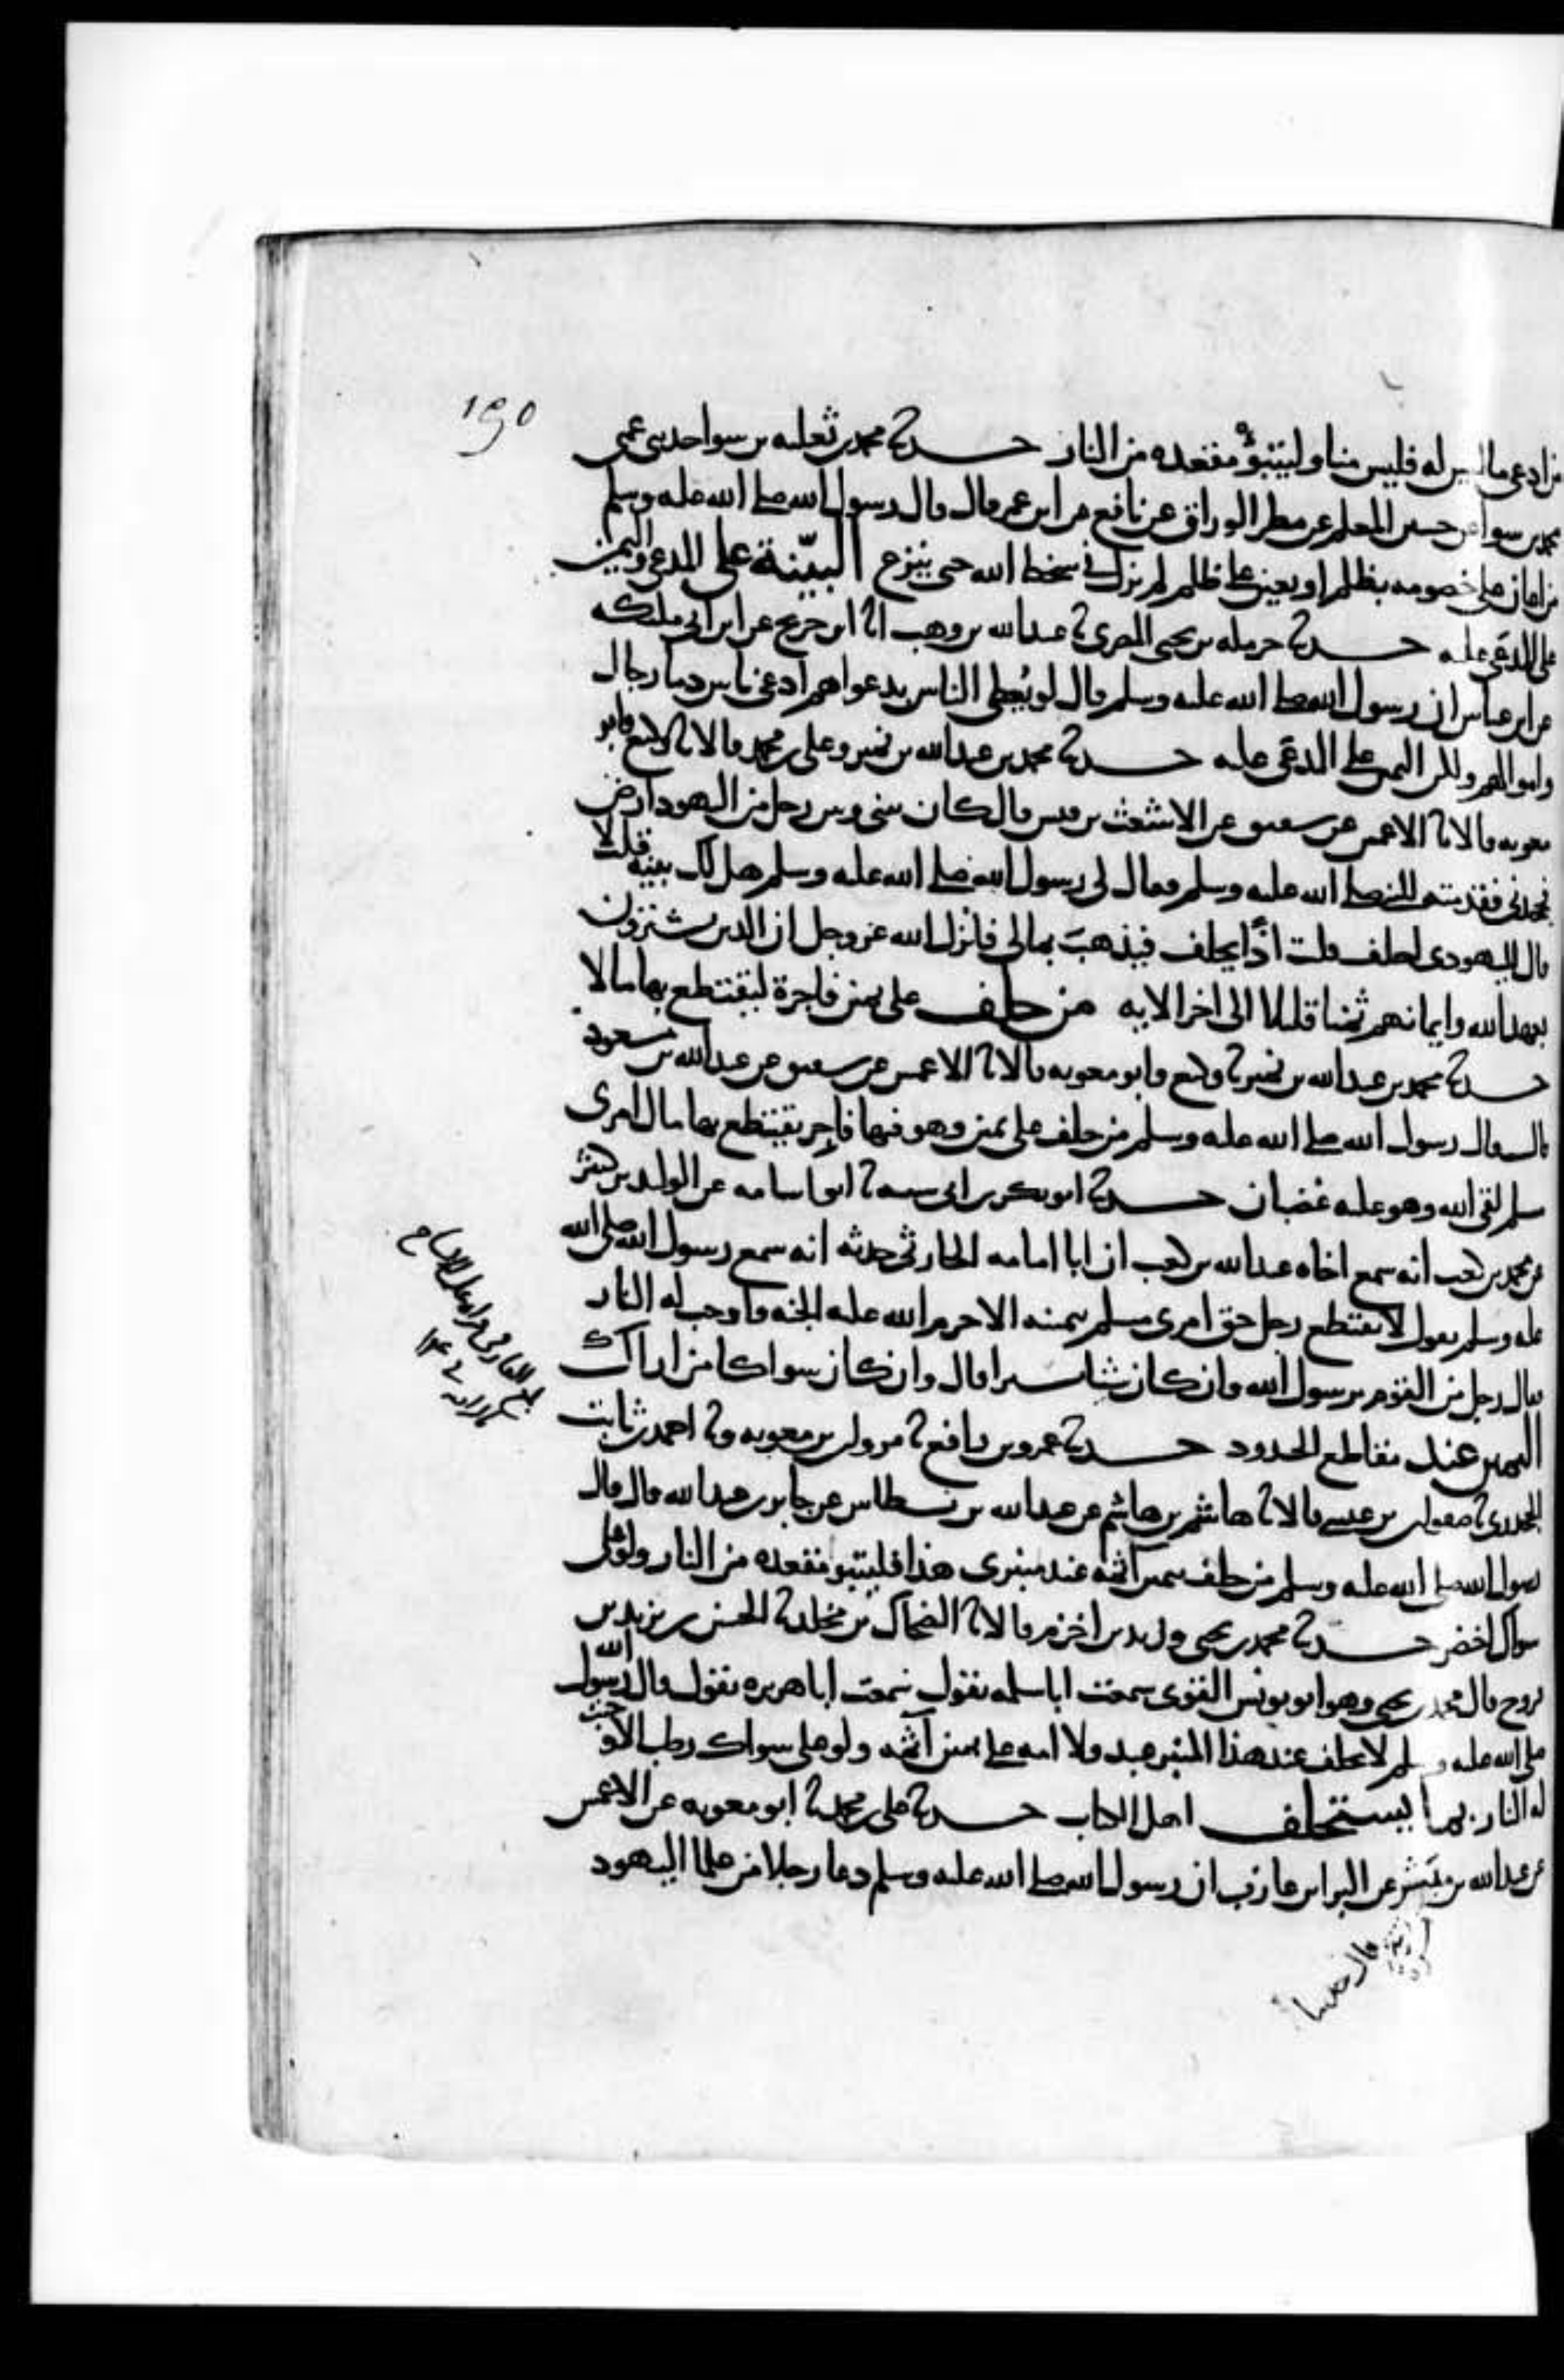 195
من ادعى ما ليس له فليس منا وليتبوؤ مقعده من النار حدثنا محمد بن ثعلبه بن سوا حدثنى عمى
محمد بن سوا عن حسين المعلم عن مطر الوراق عن نافع عن ابن عمر قال قال رسول الله صلى الله عليه وسلم
من اعان على خصومه بظلم او يعين على ظلم لم يزل في سخط الله حتى ينزع البيّنة على المدعى واليمين
على المدعى عليه حدثنا حرمله بن يحيى المصرى ثنا عبد الله بن وهب انا ابن جريج عن ابن ابى مليكه
عن ابن عباس ان رسول الله صلى الله عليه وسلم قال لو يُعطى الناس بدعواهم ادعى ناس دما رجال
واموالهم ولكن اليمين على المدعى عليه حدثنا محمد بن عبد الله بن نمير وعلى بن محمد قالا ثنا وكيع وابو
معويه قالا ثنا الاعمش عن شقيق عن الاشعث بن قيس قال كان بينى وبين رجل من اليهود ارض
فجحدنى فقدمته الى النبي صلى الله عليه وسلم فقال لى رسول الله صلى الله عليه وسلم هل لك بينه قلت لا
قال لليهودى احلف قلت اذًا يحلف فيذهبَ بمالى فانزل الله عز وجل ان الذين يشترون
بعهد الله وايمانهم ثمنا قليلا الى اخر الايه من حلف على يمين فاجرة ليقتطع بها مالا
حدثنا محمد بن عبد الله بن نمير ثنا وكيع وابو معويه قالا ثنا الاعمش عن شقيق عن عبد الله بن مسعود
قال قال رسول الله صلى الله عليه وسلم من حلف على يمين وهو فيها فاجر يقتطع بها مال امرى
مسلم لقى الله وهو عليه غضبان حدثنا ابو بكر بن ابى شيبه ثنا ابو اسامه عن الوليد بن كثير
عن محمد بن كعب انه سمع اخاه عبد الله بن كعب ان ابا امامه الحارثى حدثه انه سمع رسول الله صلى الله
عليه وسلم يقول لا يقتطع رجل حق امرى مسلم بيمينه الا حرم الله عليه الجنه واوجب له النار
فقال رجل من القوم يرسول الله وان كان شيا يسيرا قال وان كان سواكا من اراك
اليمين عند مقاطع الحدود حدثنا عمرو بن رافع ثنا مروان بن معويه وثنا احمد بن ثابت
الجحدرى ثنا صفوان بن عيسى قالا ثنا هاشم بن هاشم عن عبد الله بن نسطاس عن جابر بن عبد الله قال قال
رسول الله صلى الله عليه وسلم من حلف بيمين آثمه عند منبرى هذا فليتبو مقعده من النار ولو على
سواك اخضر حدثنا محمد بن يحيى وزيد بن اخزم قالا ثنا الضحاك بن مخلد ثنا الحسن بن يزيد بن
فروخ قال محمد بن يحيى وهو ابو يونس القوى سمعت ابا سلمه يقول سمعت ابا هريره يقول قال رسول الله
صلى الله عليه وسلم لا يحلف عند هذا المنبر عبد ولا امه على يمين آثمه ولو على سواك رطب الا وجبت
له النار بما يستحلف اهل الكتاب حدثنا على بن محمد ثنا ابو معويه عن الاعمش
عن عبد الله بن مُرة عن البرا بن عازب ان رسول الله صلى الله عليه وسلم دعا رجلا من علما اليهود